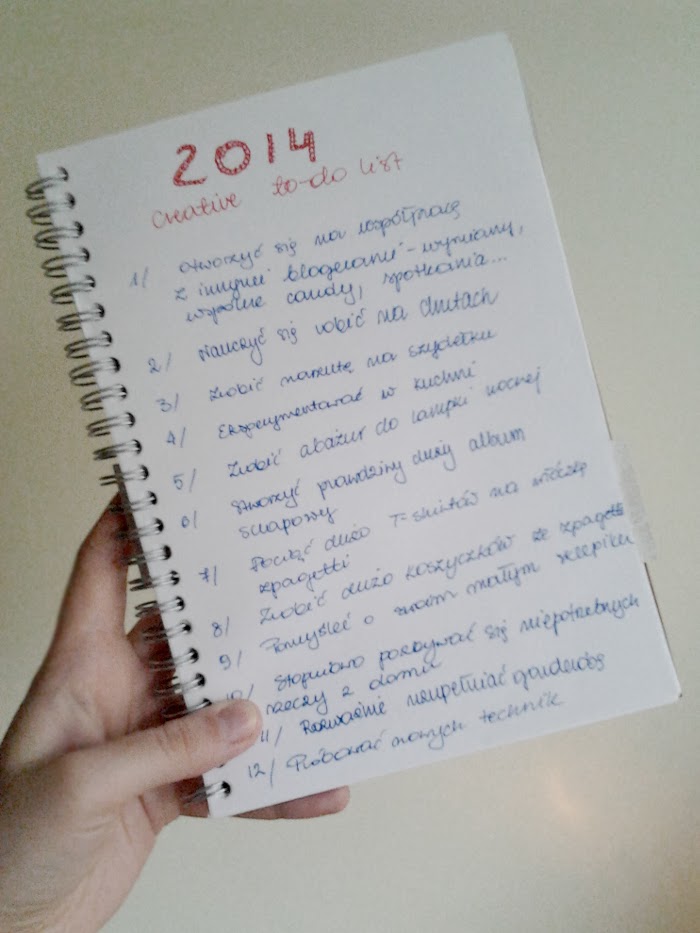 2014
creative to-do list
1/ otworzyć się na współpracę
z innymi blogerami - wymiany,
wspólne candy, spotkania...
2/ Nauczyć się robić na drutach
3/ zrobić narzutę na szydełku
4/ Eksperymentować w kuchni
5/ Zrobić abażur do lampki nocnej
6/ stworzyć prawdziwy duży album
scrapowy
7/ Pociąć dużo T-shirtów na włóczkę
zpagetti
8/ Zrobić dużo koszyczków ze zpagetti
9/ Pomyśleć o swoim małym sklepiku
10/ Stopniowo pozbywać się niepotrzebnych
rzeczy z domu
11/ Rozważnie uzupełniać garderobę
12/ Próbować nowych technik